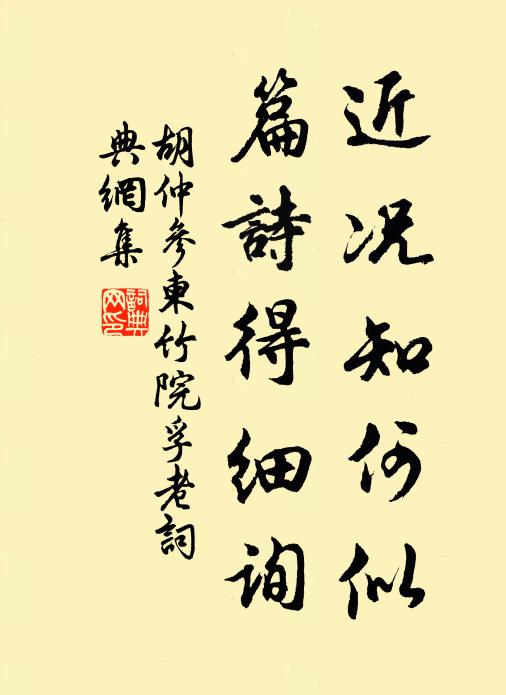 近况知何似
篇詩得细询
胡仲參東竹院孚老詞
典網集
詞典
网印